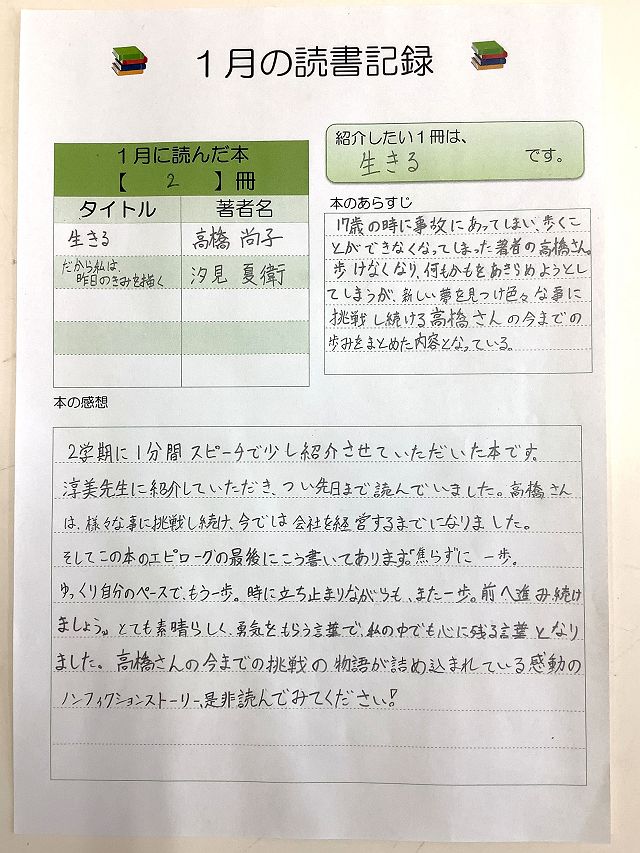 １月の読書記録
１月に読んだ本
【 2 】冊
タイトル 著者名
生きる 高橋 尚子
だから私は、
昨日のきみを描く 汐見 夏衛
紹介したい１冊は、
生きる です。
本のあらすじ
17歳の時に事故にあってしまい、歩くこ
とができなくなってしまった著者の高橋さん。
歩けなくなり、何もかもをあきらめようとし
てしまうが、新しい夢を見つけ色々な事に
挑戦し続ける高橋さんの今までの
歩みをまとめた内容となっている。
本の感想
2学期に1分間スピーチで少し紹介させていただいた本です。
淳美先生に紹介していただき、つい先日まで読んでいました。高橋さん
は、様々な事に挑戦し続け、今では会社を経営するまでになりました。
そしてこの本のエピローグの最後にこう書いてあります。「焦らずに 一歩。
ゆっくり自分のペースで、もう一歩。時に立ち止まりながらも、また一歩。前へ進み続け
ましょう。」とても素晴らしく、勇気をもらう言葉で、私の中でも心に残る言葉となり
ました。高橋さんの今までの挑戦の物語が詰め込まれている感動の
ノンフィクションストーリー、是非読んでみてください！